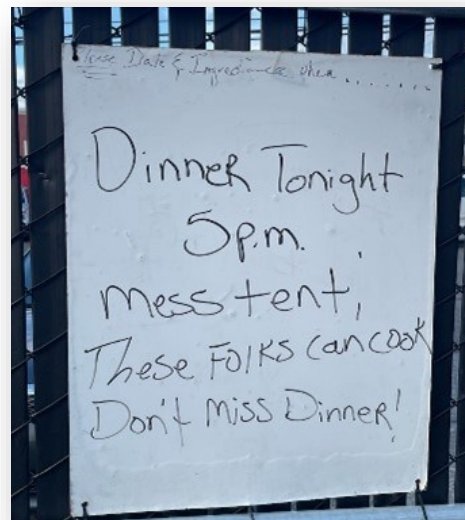 Please Date & Ingredients when .......
Dinner Tonight
5p.m.
mess tent,
These Folks can cook
Don't Miss Dinner!